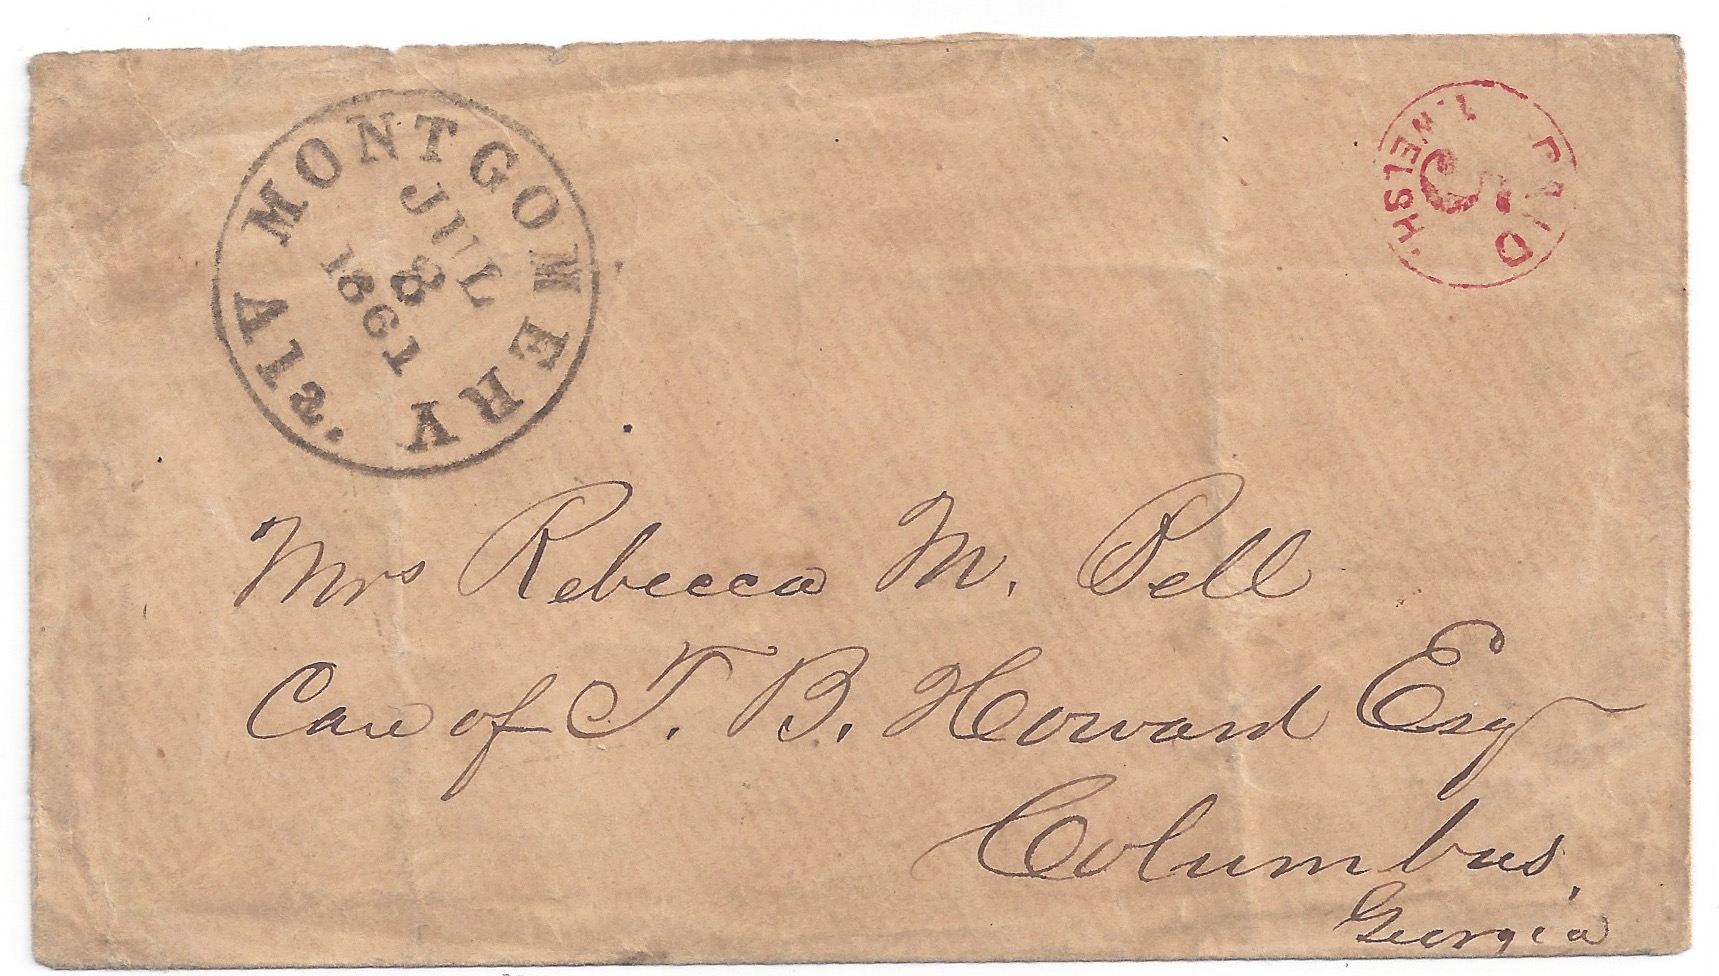 MONTGOMERY Ala.
JUL
8
1861
PAID
5
T. WELSH.
Mrs Rebecca M. Pell
Care of T. B. Howard Esq
Columbus,
Georgia